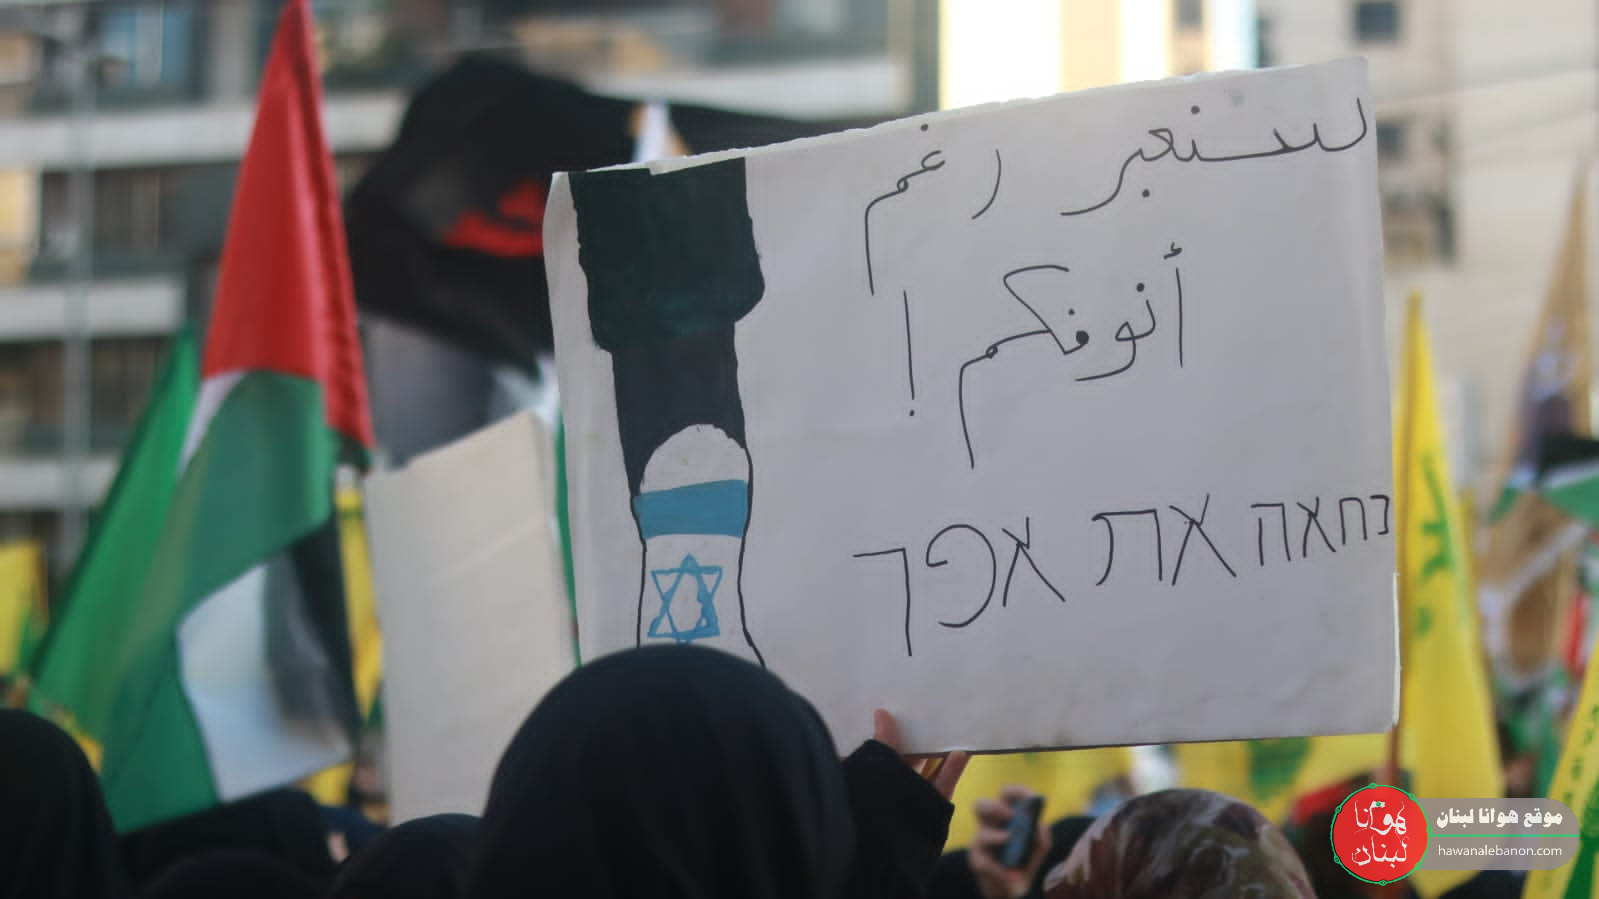 سنعبر رغم
أنوفكم!
נחאה את אפך
هوانا
لبنان
موقع هوانا لبنان
hawanalebanon.com